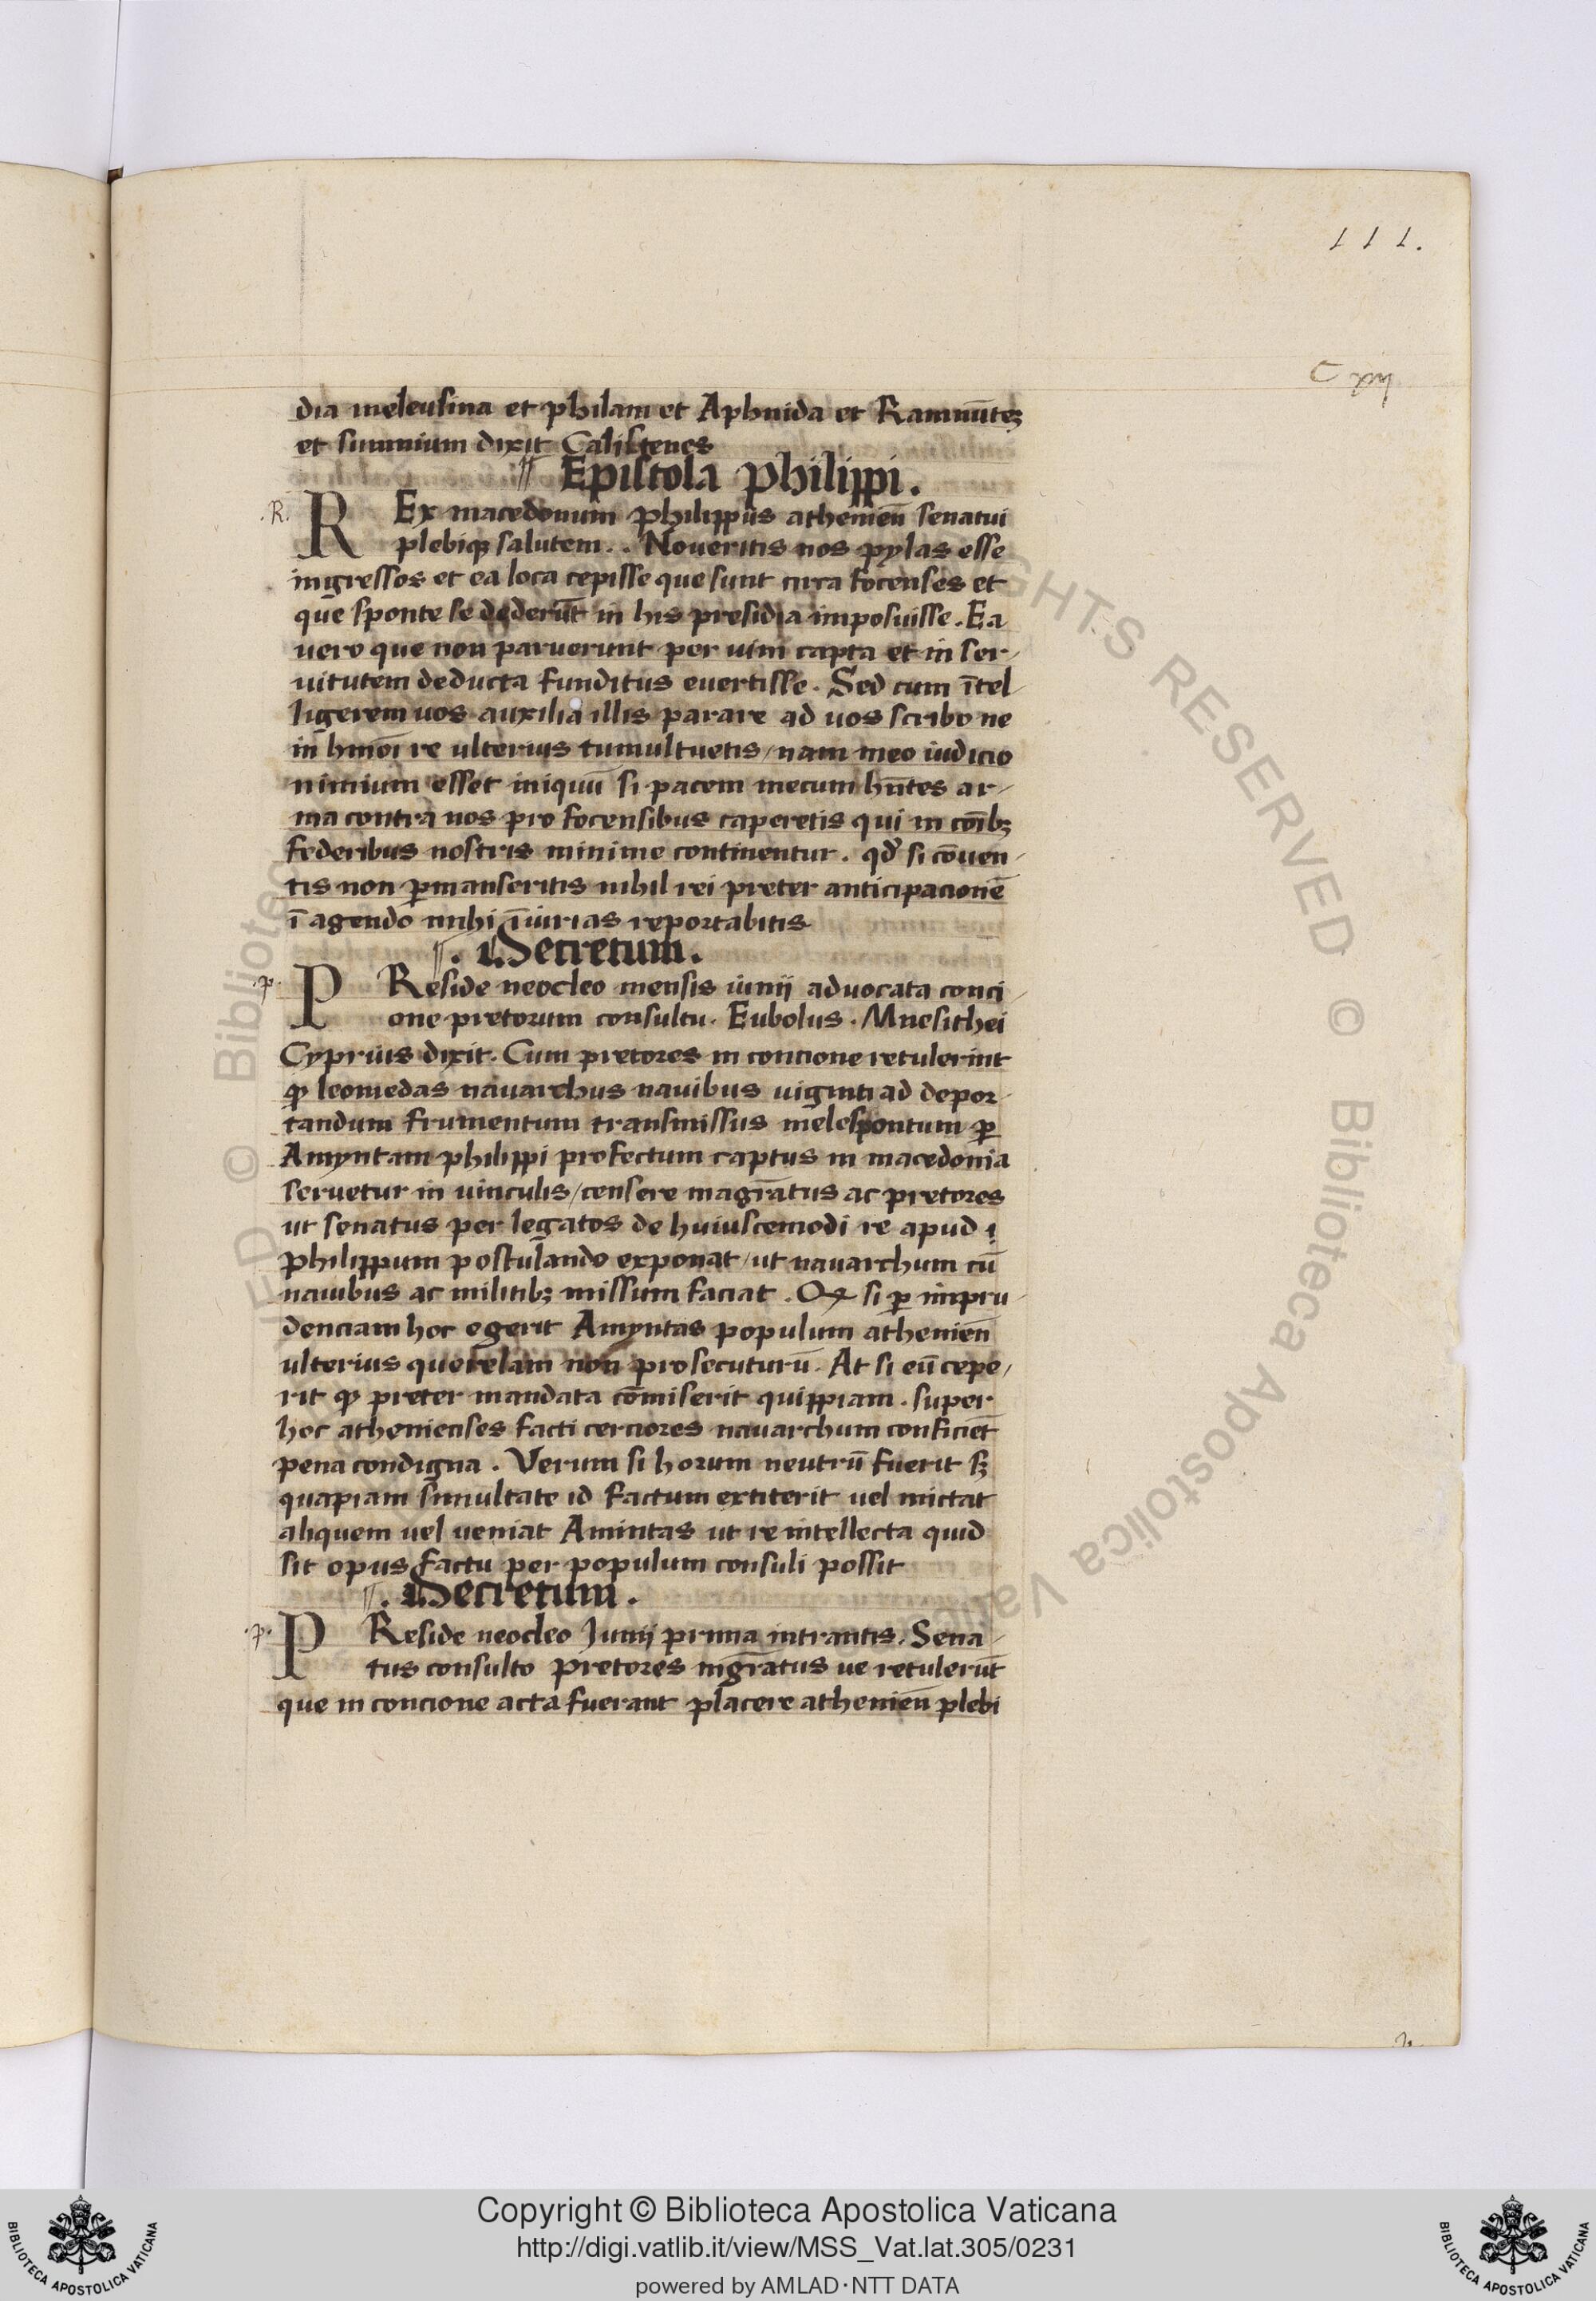 111.
C xij
dia meleusina et philam et Aphnida et Ramnūteȝ
et sunnium dixit Calistenes
¶ Epistola philippi.
.R. R Ex macedonum philippus athenieñ senatui
plebiqȝ salutem.. Noveritis nos pylas esse
ingressos et ea loca cepisse que sunt circa focenses et
que sponte se dederūt in his presidia imposuisse. Ea
uero que non paruerunt per uim capta et in ser-
uitutem deducta funditus evertisse. Sed cum ītel-
ligerem uos auxilia illis parare ad uos scribo ne
in hmōi re ulterius tumultuetis/nam meo iudicio
nimium esset iniquū si pacem mecum hn̄tes ar-
ma contra nos pro focensibus caperetis qui in cōibȝ
federibus nostris minime continentur. qđ si cōuen-
tis non ꝑmanseritis nihil rei preter anticipacionē
ī agendo mihi īiurias reportabitis
¶. Decretum.
.p. P Reside neocleo mensis iunij advocata conci-
one pretorum consultu. Eubolus. Mnesithei
Cyprius dixit. Cum pretores in concione retulerint
ꝙ leomedas navarchus navibus uiginti ad depor-
tandum frumentum transmissus melespontum ꝑ
Amyntam philippi profectum captus in macedonia
seruetur in uinculis/censere magr̄atus ac pretores
ut senatus per legatos de huiuscemodi re apud
philippum postulando exponat/ut navarchum cū
navibus ac militibȝ missum faciat. Qꝙ si ꝑ impru-
denciam hoc egerit Amyntas populum athenieñ
ulterius querelam non prosecuturū. At si eū cepe-
rit ꝙ preter mandata cōmiserit quippiam. super
hoc athenienses facti cerciores navarchum conficiēt
pena condigna. Verum si horum neutrū fuerit sȝ
quapiam simultate id factum extiterit uel mictat
aliquem uel ueniat Amintas ut re intellecta quid
sit opus factu per populum consuli possit
¶. Decretum.
.p. P Reside neocleo Junij prima intrantis. Sena-
tus consulto pretores mgr̄atus ue retulerūt
que in concione acta fuerant placere athenieñ plebi
Copyright © Biblioteca Apostolica Vaticana
http://digi.vatlib.it/view/MSS_Vat.lat.305/0231
powered by AMLAD·NTT DATA
BIBLIOTECA APOSTOLICA VATICANA
BIBLIOTECA APOSTOLICA VATICANA